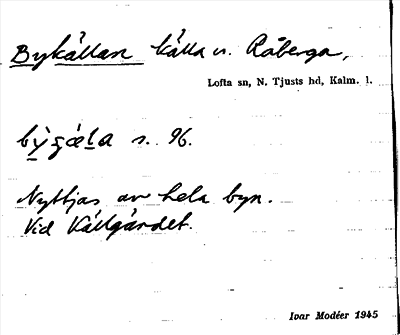 Bykällan källa v. Råberga,
Lofta sn, N. Tjusts hd, Kalm. l.
s. 96.
Nyttjas av hela byn.
Vid Källgärdet.
Ivar Modéer 1945